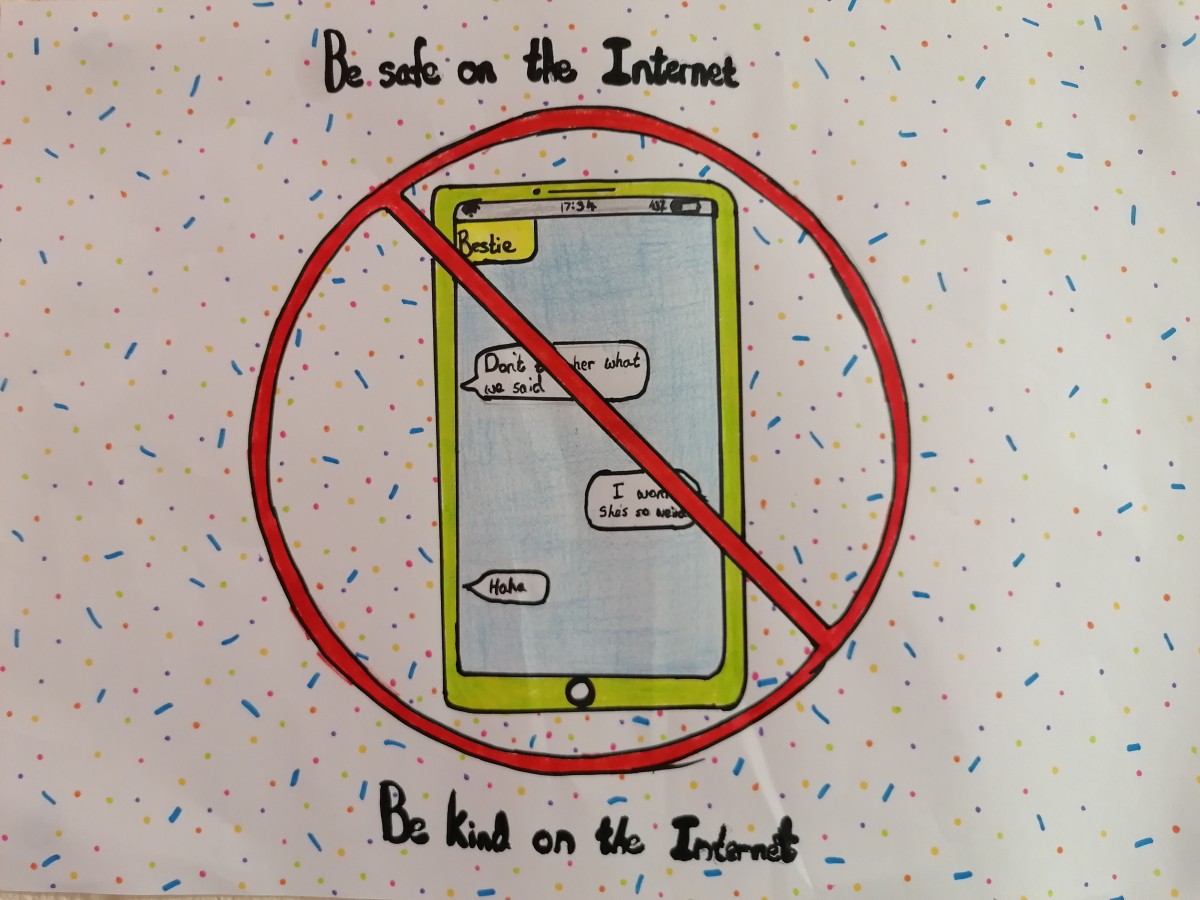 Be safe on the Internet
17:34
Bestie
Don't her what
we said
I
She's so
Haha
Be kind on the Internet